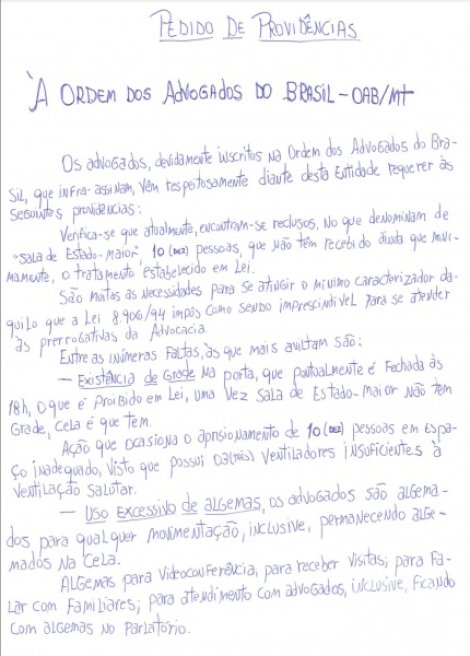 PEDIDO DE PROVIDÊNCIAS
À ORDEM DOS ADVOGADOS DO BRASIL - OAB/MT
Os advogados, devidamente inscritos na Ordem dos Advogados do Bra-
sil, que infra-assinam, vêm respeitosamente diante desta Entidade requerer às
seguintes providências:
Verifica-se que atualmente, encontram-se reclusos, no que denominam de
"Sala de Estado-Maior", 10 (dez) pessoas, que não têm recebido ainda que mini-
mamente, o tratamento estabelecido em Lei.
São muitas as necessidades para se atingir o mínimo caracterizador da-
quilo que a Lei 8.906/94 impôs como sendo imprescindível para se atender
às prerrogativas da Advocacia.
Entre as inúmeras faltas, às que mais aviltam são:
— Existência de Grade na porta, que pontualmente é fechada às
18h, o que é proibido em Lei, uma vez Sala de Estado-Maior não tem
grade, cela é que tem.
Ação que ocasiona o aprisionamento de 10 (dez) pessoas em espa-
ço inadequado, visto que possui 03 (três) ventiladores insuficientes à
ventilação salutar.
— Uso Excessivo de algemas, os advogados são algema-
dos para qualquer movimentação, inclusive, permanecendo alge-
mados na cela.
Algemas para videoconferência; para receber visitas; para fa-
lar com familiares; para atendimento com advogados, inclusive, ficando
com algemas no parlatório.